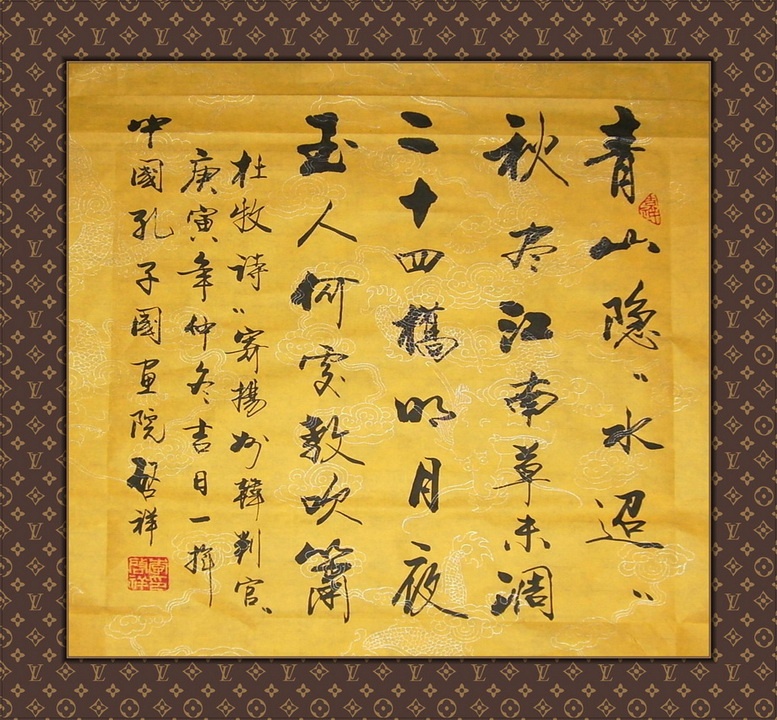 青山隐〃水迢〃
秋尽江南草未凋
二十四橋明月夜
玉人何處教吹簫
杜牧诗〝寄揚州韓判官〞
庚寅年仲冬吉日一挥
中國孔子國画院啓祥